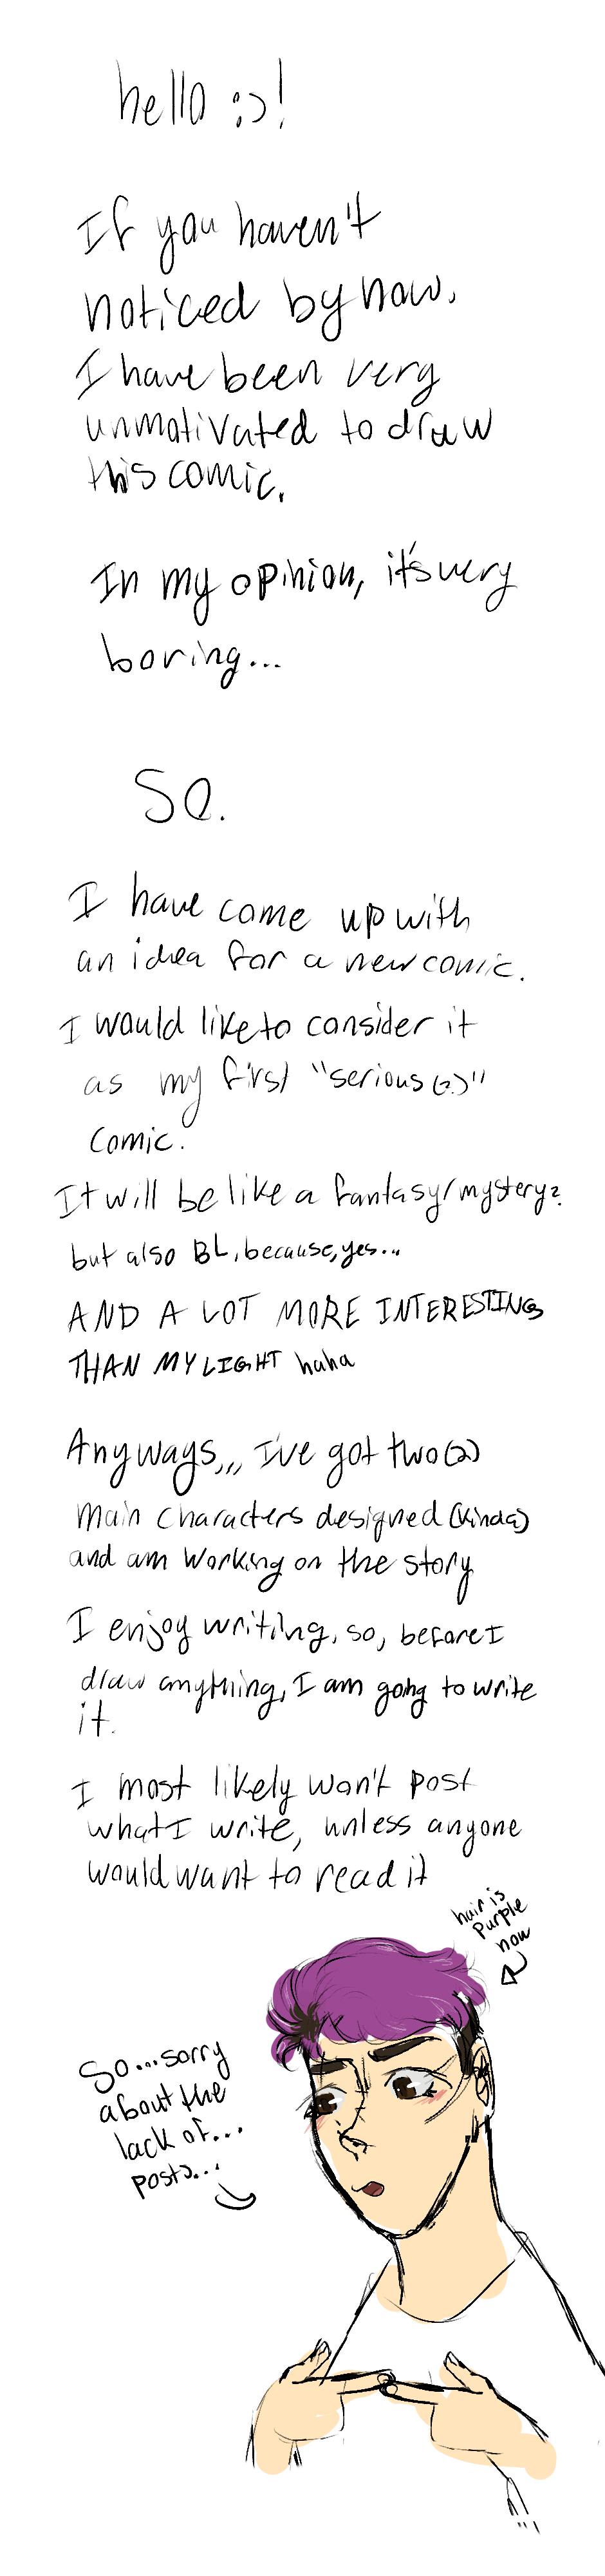 hello :)!
If you haven't
noticed by now.
I have been very
unmotivated to draw
this comic.
In my opinion, it's very
boring...
So.
I have come up with
an idea for a new comic.
I would like to consider it
as my first "serious(?)"
comic.
It will be like a fantasy/mystery?
but also BL, because, yes...
AND A LOT MORE INTERESTING
THAN MY LIGHT haha
Anyways,,, I've got two(2)
main characters designed (kinda)
and am working on the story
I enjoy writing, so, before I
draw anything, I am going to write
it.
I most likely won't post
what I write, unless anyone
would want to read it
hair is
purple
now
So...sorry
about the
lack of...
posts...